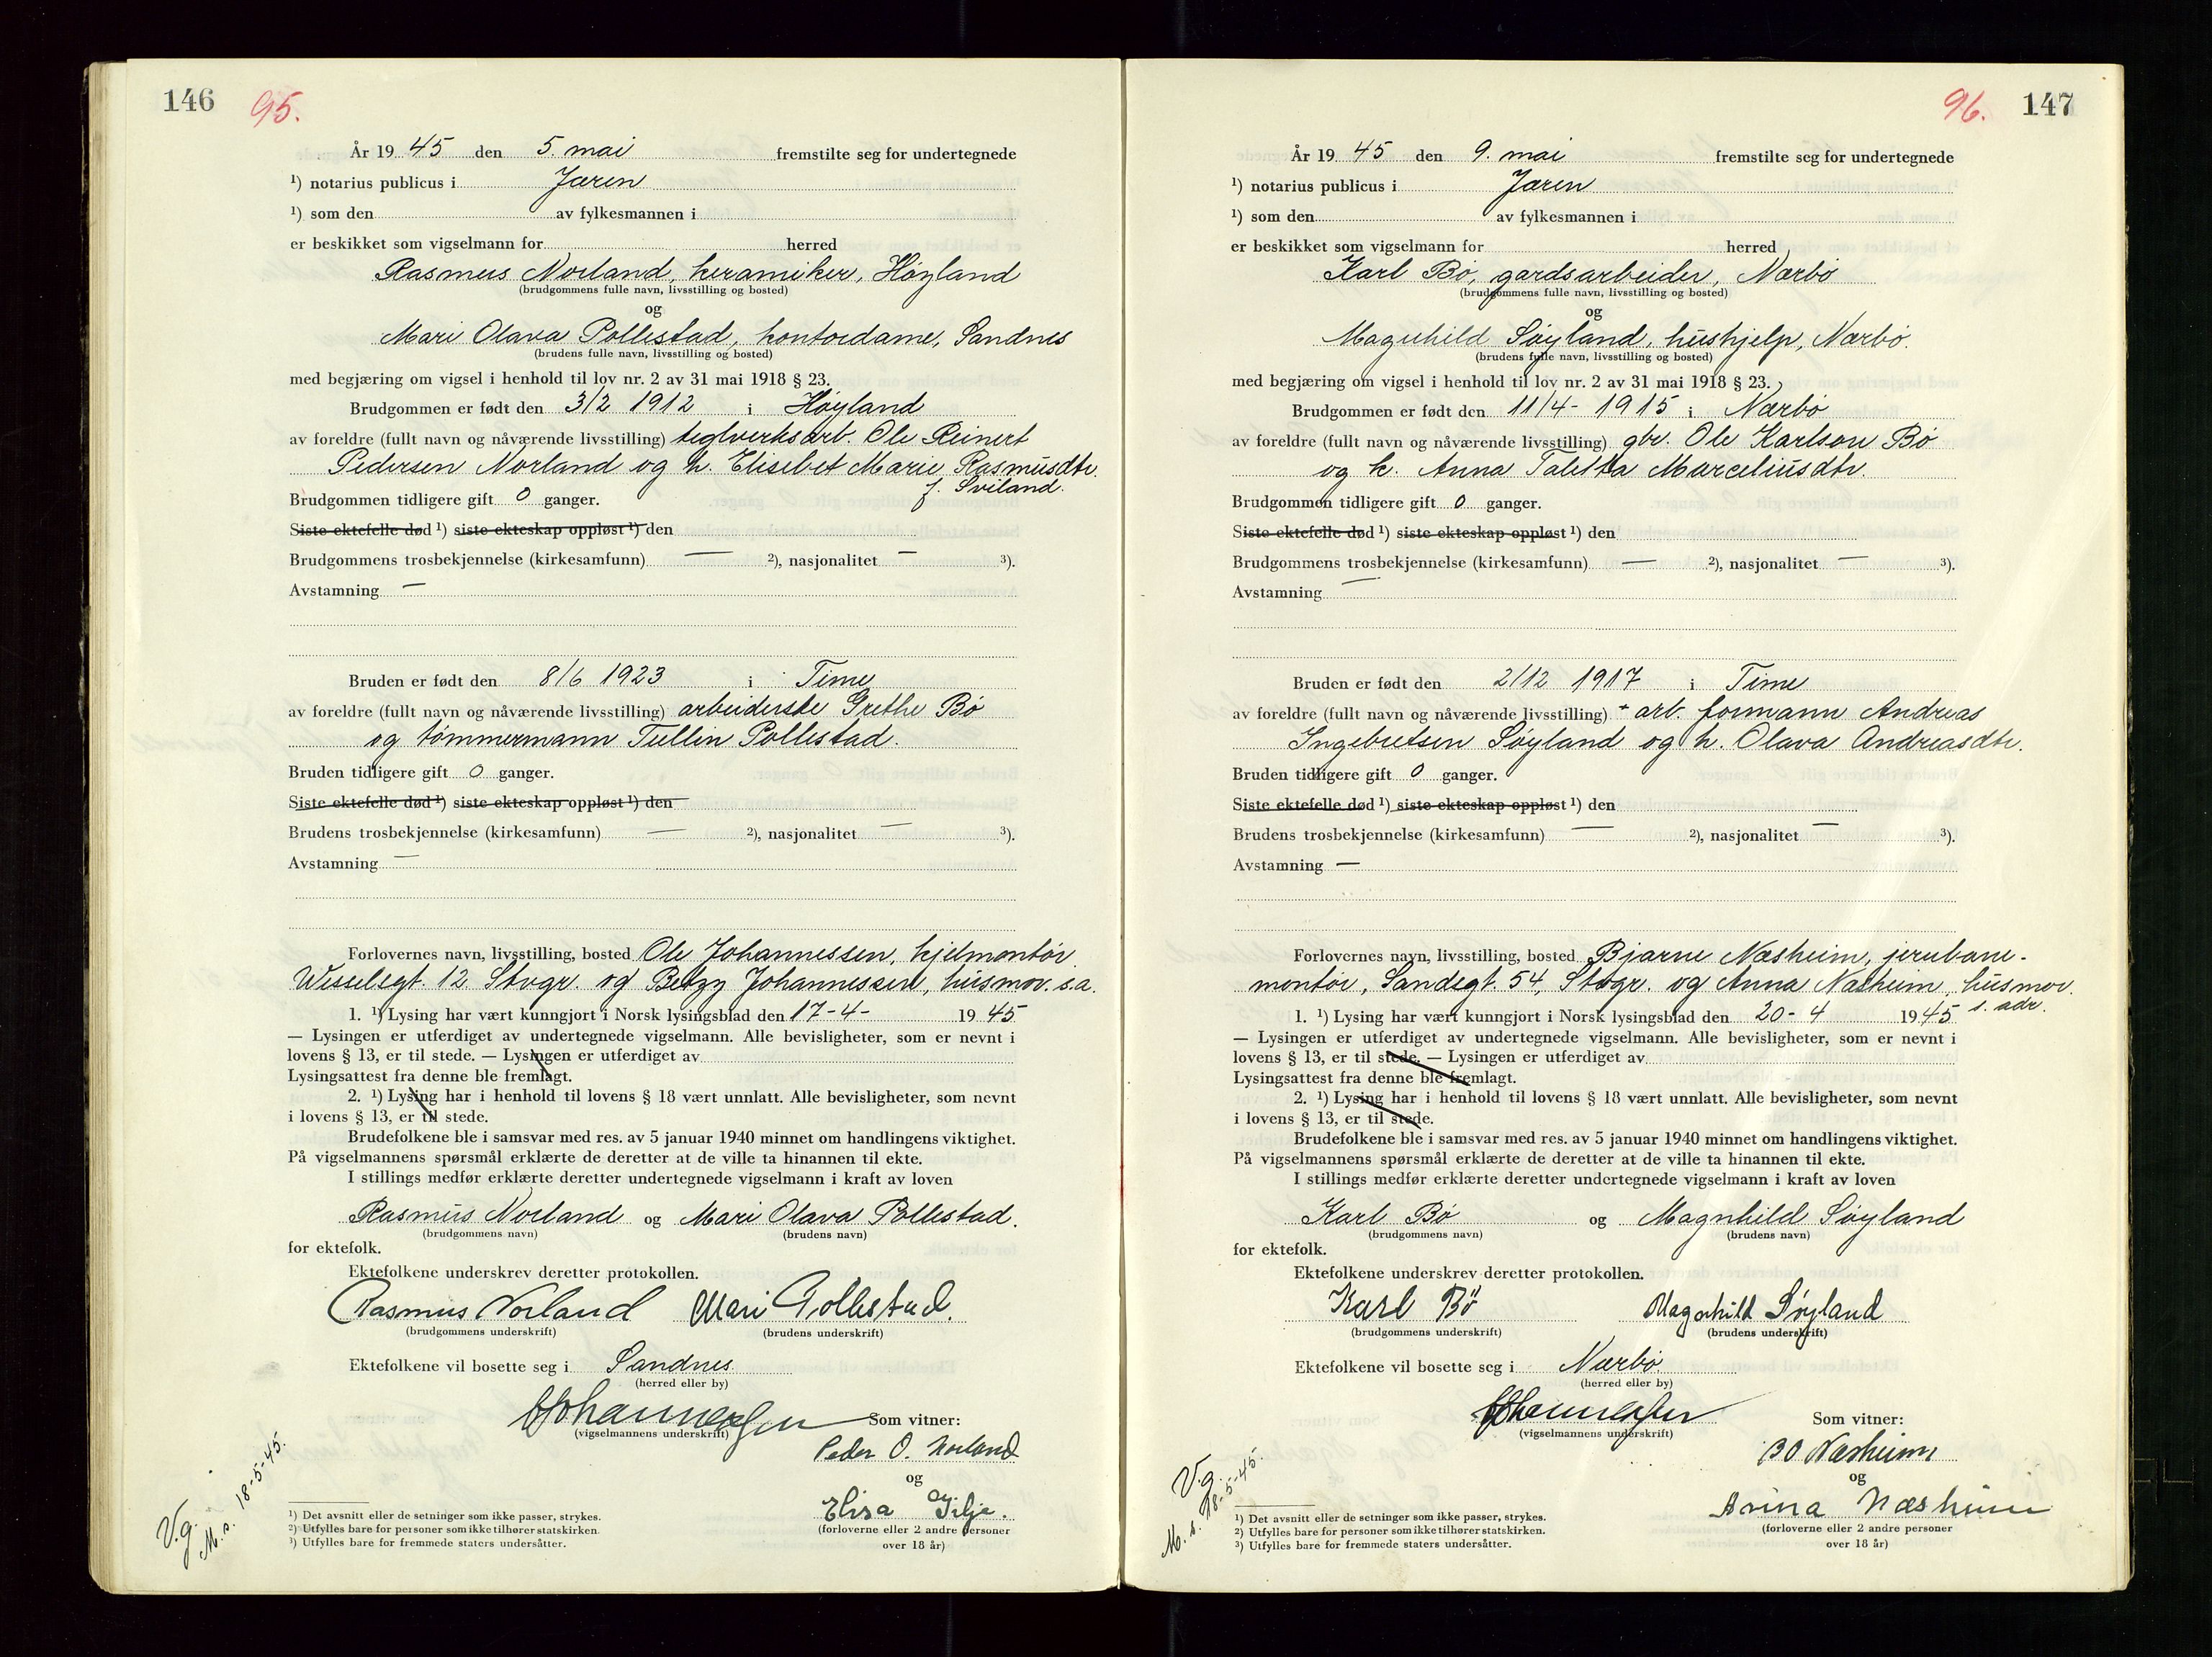 146 95.
År 19 45 den 5. mai fremstilte seg for undertegnede
¹) notarius publicus i Jæren
¹) som den av fylkesmannen i
er beskikket som vigselmann for herred
Rasmus Norland, keramiker, Høyland
(brudgommens fulle navn, livsstilling og bosted)
og
Mari Olava Pollestad, kontordame, Sandnes
(brudens fulle navn, livsstilling og bosted)
med begjæring om vigsel i henhold til lov nr. 2 av 31 mai 1918 § 23.
Brudgommen er født den 3/2 1912 i Høyland
av foreldre (fullt navn og nåværende livsstilling) teglverksarb. Ole Reinert
Pedersen Norland og h. Elisebet Marie Rasmusdtr.
f. Sviland.
Brudgommen tidligere gift 0 ganger.
Siste ektefelle død ¹) siste ekteskap oppløst ¹) den
Brudgommens trosbekjennelse (kirkesamfunn) — ²), nasjonalitet — ³).
Avstamning —
Bruden er født den 8/6 1923 i Time
av foreldre (fullt navn og nåværende livsstilling) arbeiderske Grethe Bø
og tømmermann Tullen Pollestad.
Bruden tidligere gift 0 ganger.
Siste ektefelle død ¹) siste ekteskap oppløst ¹) den
Brudens trosbekjennelse (kirkesamfunn) — ²), nasjonalitet — ³).
Avstamning —
Forlovernes navn, livsstilling, bosted Ole Johannessen, kjelmontør
Wesselsgt. 12 Stvgr. og Betzy Johannessen, husmor. s.a.
1. ¹) Lysing har vært kunngjort i Norsk lysingsblad den 17-4- 19 45
— Lysingen er utferdiget av undertegnede vigselmann. Alle bevisligheter, som er nevnt i
lovens § 13, er til stede. — Lysingen er utferdiget av
Lysingsattest fra denne ble fremlagt.
2. ¹) Lysing har i henhold til lovens § 18 vært unnlatt. Alle bevisligheter, som nevnt
i lovens § 13, er til stede.
Brudefolkene ble i samsvar med res. av 5 januar 1940 minnet om handlingens viktighet.
På vigselmannens spørsmål erklærte de deretter at de ville ta hinannen til ekte.
I stillings medfør erklærte deretter undertegnede vigselmann i kraft av loven
Rasmus Norland og Mari Olava Pollestad.
(brudgommens navn) (brudens navn)
for ektefolk.
Ektefolkene underskrev deretter protokollen.
Rasmus Norland Mari Pollestad.
(brudgommens underskrift) (brudens underskrift)
Ektefolkene vil bosette seg i Sandnes
(herred eller by)
Johannessen Som vitner:
(vigselmannens underskrift)
Peder O. Norland
og
Elisa Tilje.
(forloverne eller 2 andre personer
over 18 år)
V.g.
M. s. 18-5-45.
¹) Det avsnitt eller de setninger som ikke passer, strykes.
²) Utfylles bare for personer som ikke tilhører statskirken.
³) Utfylles bare for fremmede staters undersåtter.
96. 147
År 19 45 den 9. mai fremstilte seg for undertegnede
¹) notarius publicus i Jæren
¹) som den av fylkesmannen i
er beskikket som vigselmann for herred
Karl Bø, gardsarbeider, Nærbø
(brudgommens fulle navn, livsstilling og bosted)
og
Magnhild Søyland, hushjelp, Nærbø.
(brudens fulle navn, livsstilling og bosted)
med begjæring om vigsel i henhold til lov nr. 2 av 31 mai 1918 § 23.
Brudgommen er født den 11/4- 1915 i Nærbø
av foreldre (fullt navn og nåværende livsstilling) gbr. Ole Karlson Bø
og h. Anna Taletta Marceliusdtr.
Brudgommen tidligere gift 0 ganger.
Siste ektefelle død ¹) siste ekteskap oppløst ¹) den
Brudgommens trosbekjennelse (kirkesamfunn) — ²), nasjonalitet — ³).
Avstamning —
Bruden er født den 2/12 1917 i Time
av foreldre (fullt navn og nåværende livsstilling) + arb. formann Andreas
Ingebretsen Søyland og h. Olava Andreasdtr.
Bruden tidligere gift 0 ganger.
Siste ektefelle død ¹) siste ekteskap oppløst ¹) den
Brudens trosbekjennelse (kirkesamfunn) — ²), nasjonalitet — ³).
Avstamning —
Forlovernes navn, livsstilling, bosted Bjarne Næsheim, jernbane-
montør, Sandsgt. 54, Stvgr. og Anna Næsheim, husmor.
s. adr.
1. ¹) Lysing har vært kunngjort i Norsk lysingsblad den 20-4 19 45
— Lysingen er utferdiget av undertegnede vigselmann. Alle bevisligheter, som er nevnt i
lovens § 13, er til stede. — Lysingen er utferdiget av
Lysingsattest fra denne ble fremlagt.
2. ¹) Lysing har i henhold til lovens § 18 vært unnlatt. Alle bevisligheter, som nevnt
i lovens § 13, er til stede.
Brudefolkene ble i samsvar med res. av 5 januar 1940 minnet om handlingens viktighet.
På vigselmannens spørsmål erklærte de deretter at de ville ta hinannen til ekte.
I stillings medfør erklærte deretter undertegnede vigselmann i kraft av loven
Karl Bø og Magnhild Søyland
(brudgommens navn) (brudens navn)
for ektefolk.
Ektefolkene underskrev deretter protokollen.
Karl Bø Magnhild Søyland
(brudgommens underskrift) (brudens underskrift)
Ektefolkene vil bosette seg i Nærbø.
(herred eller by)
Johannessen Som vitner:
(vigselmannens underskrift)
BO Næsheim
og
Anna Næsheim
(forloverne eller 2 andre personer
over 18 år)
V.g.
M. s. 18-5-45.
¹) Det avsnitt eller de setninger som ikke passer, strykes.
²) Utfylles bare for personer som ikke tilhører statskirken.
³) Utfylles bare for fremmede staters undersåtter.